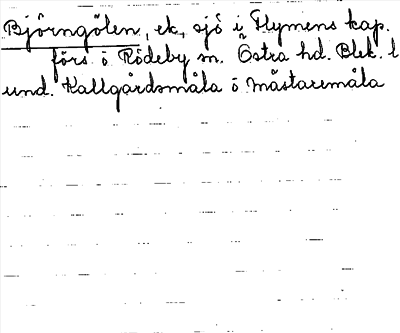 Björngölen, ek, sjö i Flymens kap.
förs. o. Rödeby sn. Östra hd. Blek. l
und. Kallgårdsmåla o Mästaremåla